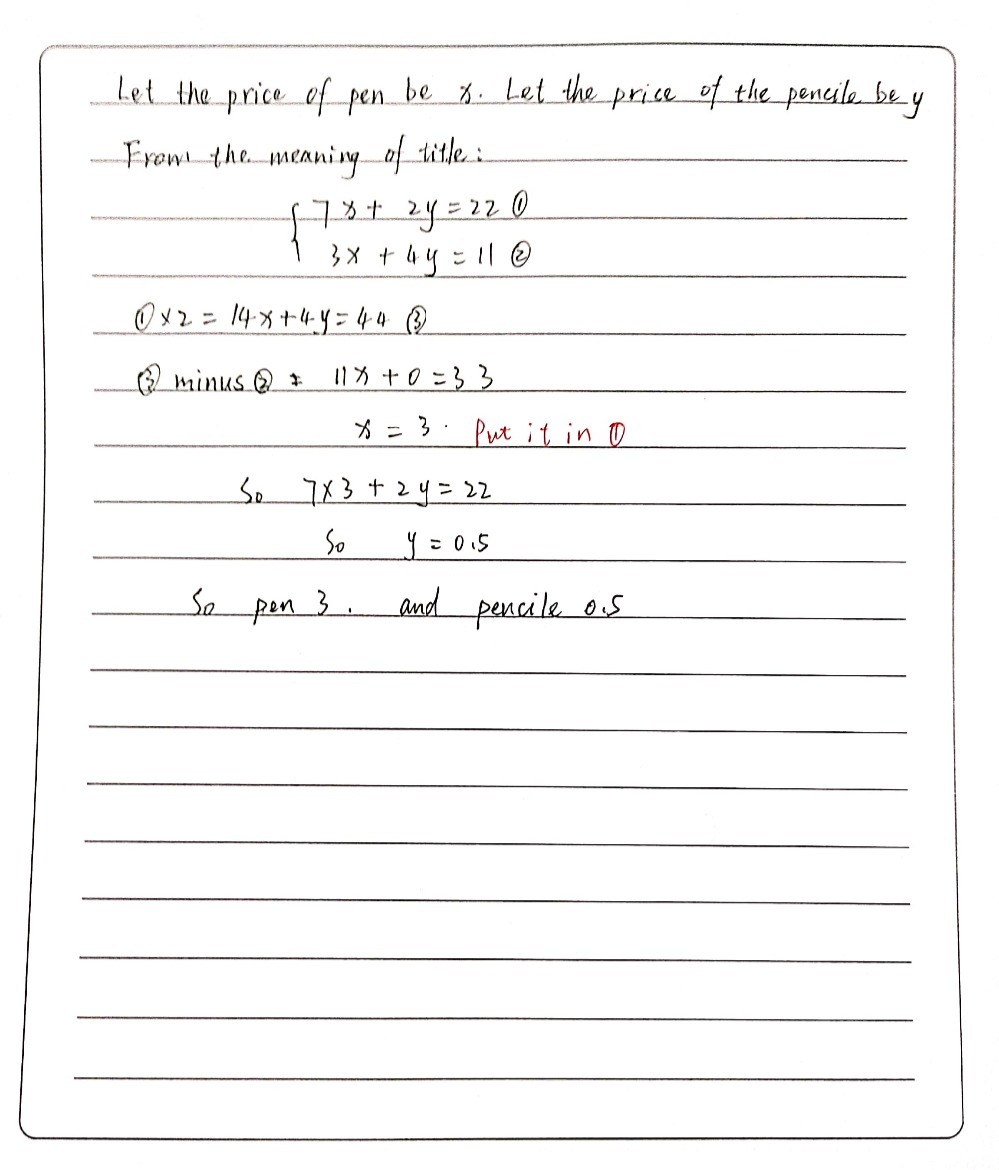 Let the price of pen be x. Let the price of the pencile be y
From the meaning of title:
7x + 2y = 22 ①
3x + 4y = 11 ②
①×2 = 14x+4y=44 ③
③ minus ② = 11x + 0 = 33
x = 3. Put it in ①
So 7×3 + 2y = 22
So y = 0.5
So pen 3. and pencile 0.5